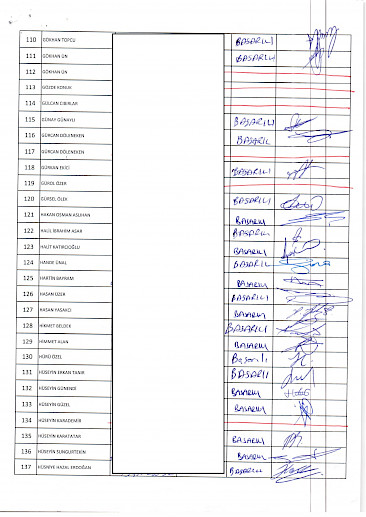 110 GÖKHAN TOPCU BAŞARILI
111 GÖKHAN ÜN BAŞARILI
112 GÖKHAN ÜN
113 GÖZDE KONUK
114 GÜLCAN CIBIRLAR
115 GÜNAY GÜNAYLI BAŞARILI
116 GÜRCAN DÖLENEKEN BAŞARIL
117 GÜRCAN DÖLENEKEN
118 GÜRKAN EKİCİ BAŞARILI
119 GÜROL ÖZER
120 GÜRSEL ÖLEK BAŞARILI
121 HAKAN OSMAN ASLIHAN BAŞARILI
122 HALİL İBRAHİM ACAR BAŞARILI
123 HALİT KATIRCIOĞLU BAŞARILI
124 HANDE ÜNAL BAŞARILI
125 HARTİN BAYRAM BAŞARILI
126 HASAN ÖZER BAŞARILI
127 HASAN YASAKCI BAŞARILI
128 HİKMET BELDEK BAŞARILI
129 HİMMET ALAN BAŞARILI
130 HÜRÜ ÖZEL Başarılı
131 HÜSEYİN ERKAN TANIR BAŞARILI
132 HÜSEYİN GÜNENDİ BAŞARILI
133 HÜSEYİN GÜZEL BAŞARILI
134 HÜSEYİN KARADEMİR
135 HÜSEYİN KARATATAR BAŞARILI
136 HÜSEYİN SUNGURTEKİN BAŞARILI
137 HÜSNİYE HAZAL ERDOĞAN BAŞARILI